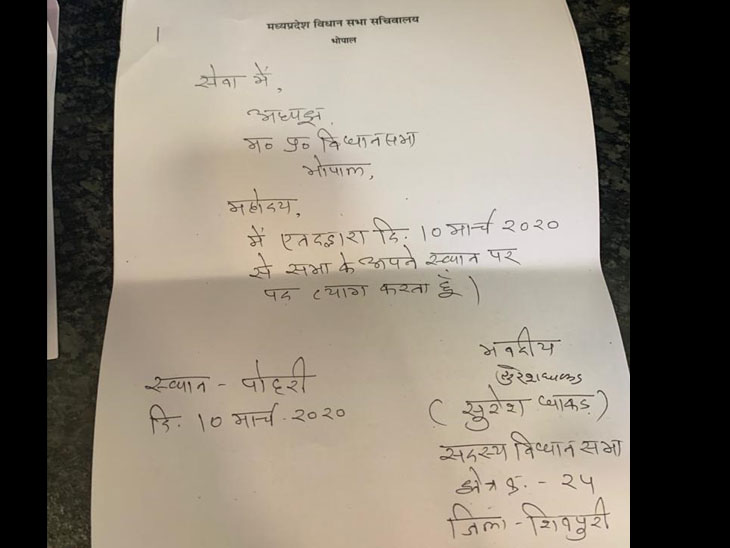 मध्यप्रदेश विधान सभा सचिवालय
भोपाल
सेवा में,
अध्यक्ष
म० प्र० विधानसभा
भोपाल,
महोदय,
में एतदद्वारा दि. 10 मार्च 2020
से सभा के अपने स्थान पर
पद त्याग करता हूँ।
भवदीय
स्थान - पोहरी
सुरेश धाकड़
दि. 10 मार्च. 2020
(सुरेश धाकड़)
सदस्य विधान सभा
क्षेत्र क्र. - 24
जिला - शिवपुरी